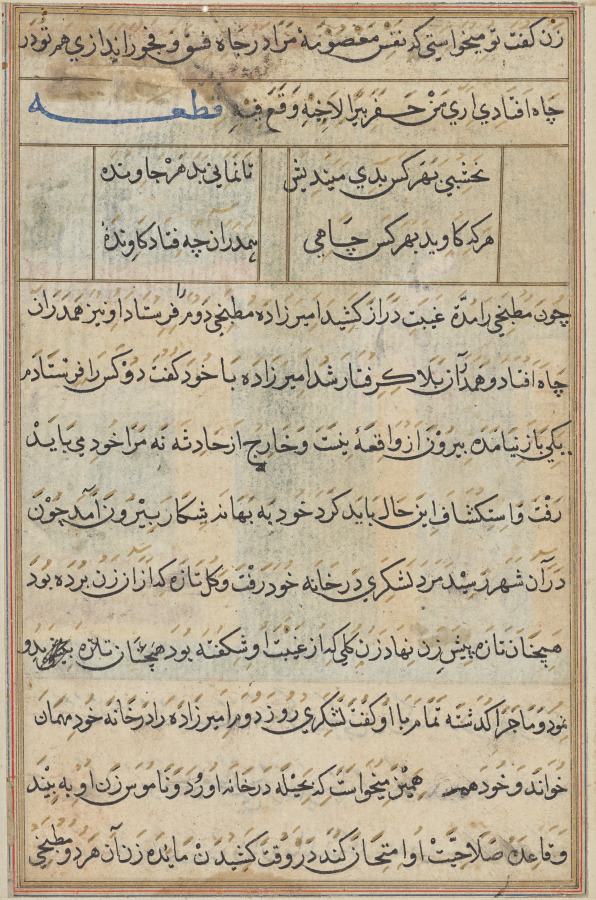 زن گفت تو میخواستی که نفس معصومهٔ مرا در چاه فسق و فجور اندازی هم تو در
چاه افتادی اری من حفر بیرا لاخیه وقع فیه قطعه
نخشبی بهر کس بدی میندیش تا نمانی بد هر جا وندهٔ
هرکه کاوید بهر کس چاهی همدران چه فتاد کاوندهٔ
چون مطبخی را مدة غیبت دراز کشید امیرزاده مطبخی دوم را فرستاد او نیز همدران
چاه افتاد و همدران بلا گرفتار شد امیرزاده با خود گفت دو کس را فرستادم
یکی باز نیامده بیرون از واقعهٔ نیست و خارج از حادثه نه مرا خود می باید
رفت و استکشاف این حال باید کرد خود به بهانه شکار بیرون آمد چون
در آن شهر رسید مرد لشکری در خانه خود رفت و گل تازه که از آن زن برده بود
همچنان تازه پیش زن نهاد زن گلی که از غیبت او شکفته بود همچنان تازه بدو
نمود و ماجرا گذشته تمام با او گفت لشکری روز دوم امیرزاده را در خانه خود مهمان
خواند و خود هم همین میخواست که بحیله در خانه او رود و ناموس زن او به بیند
و قاعدهٔ صلاحیت او امتحان کند در وقت کشیدن مایده زن آن هر دو مطبخی